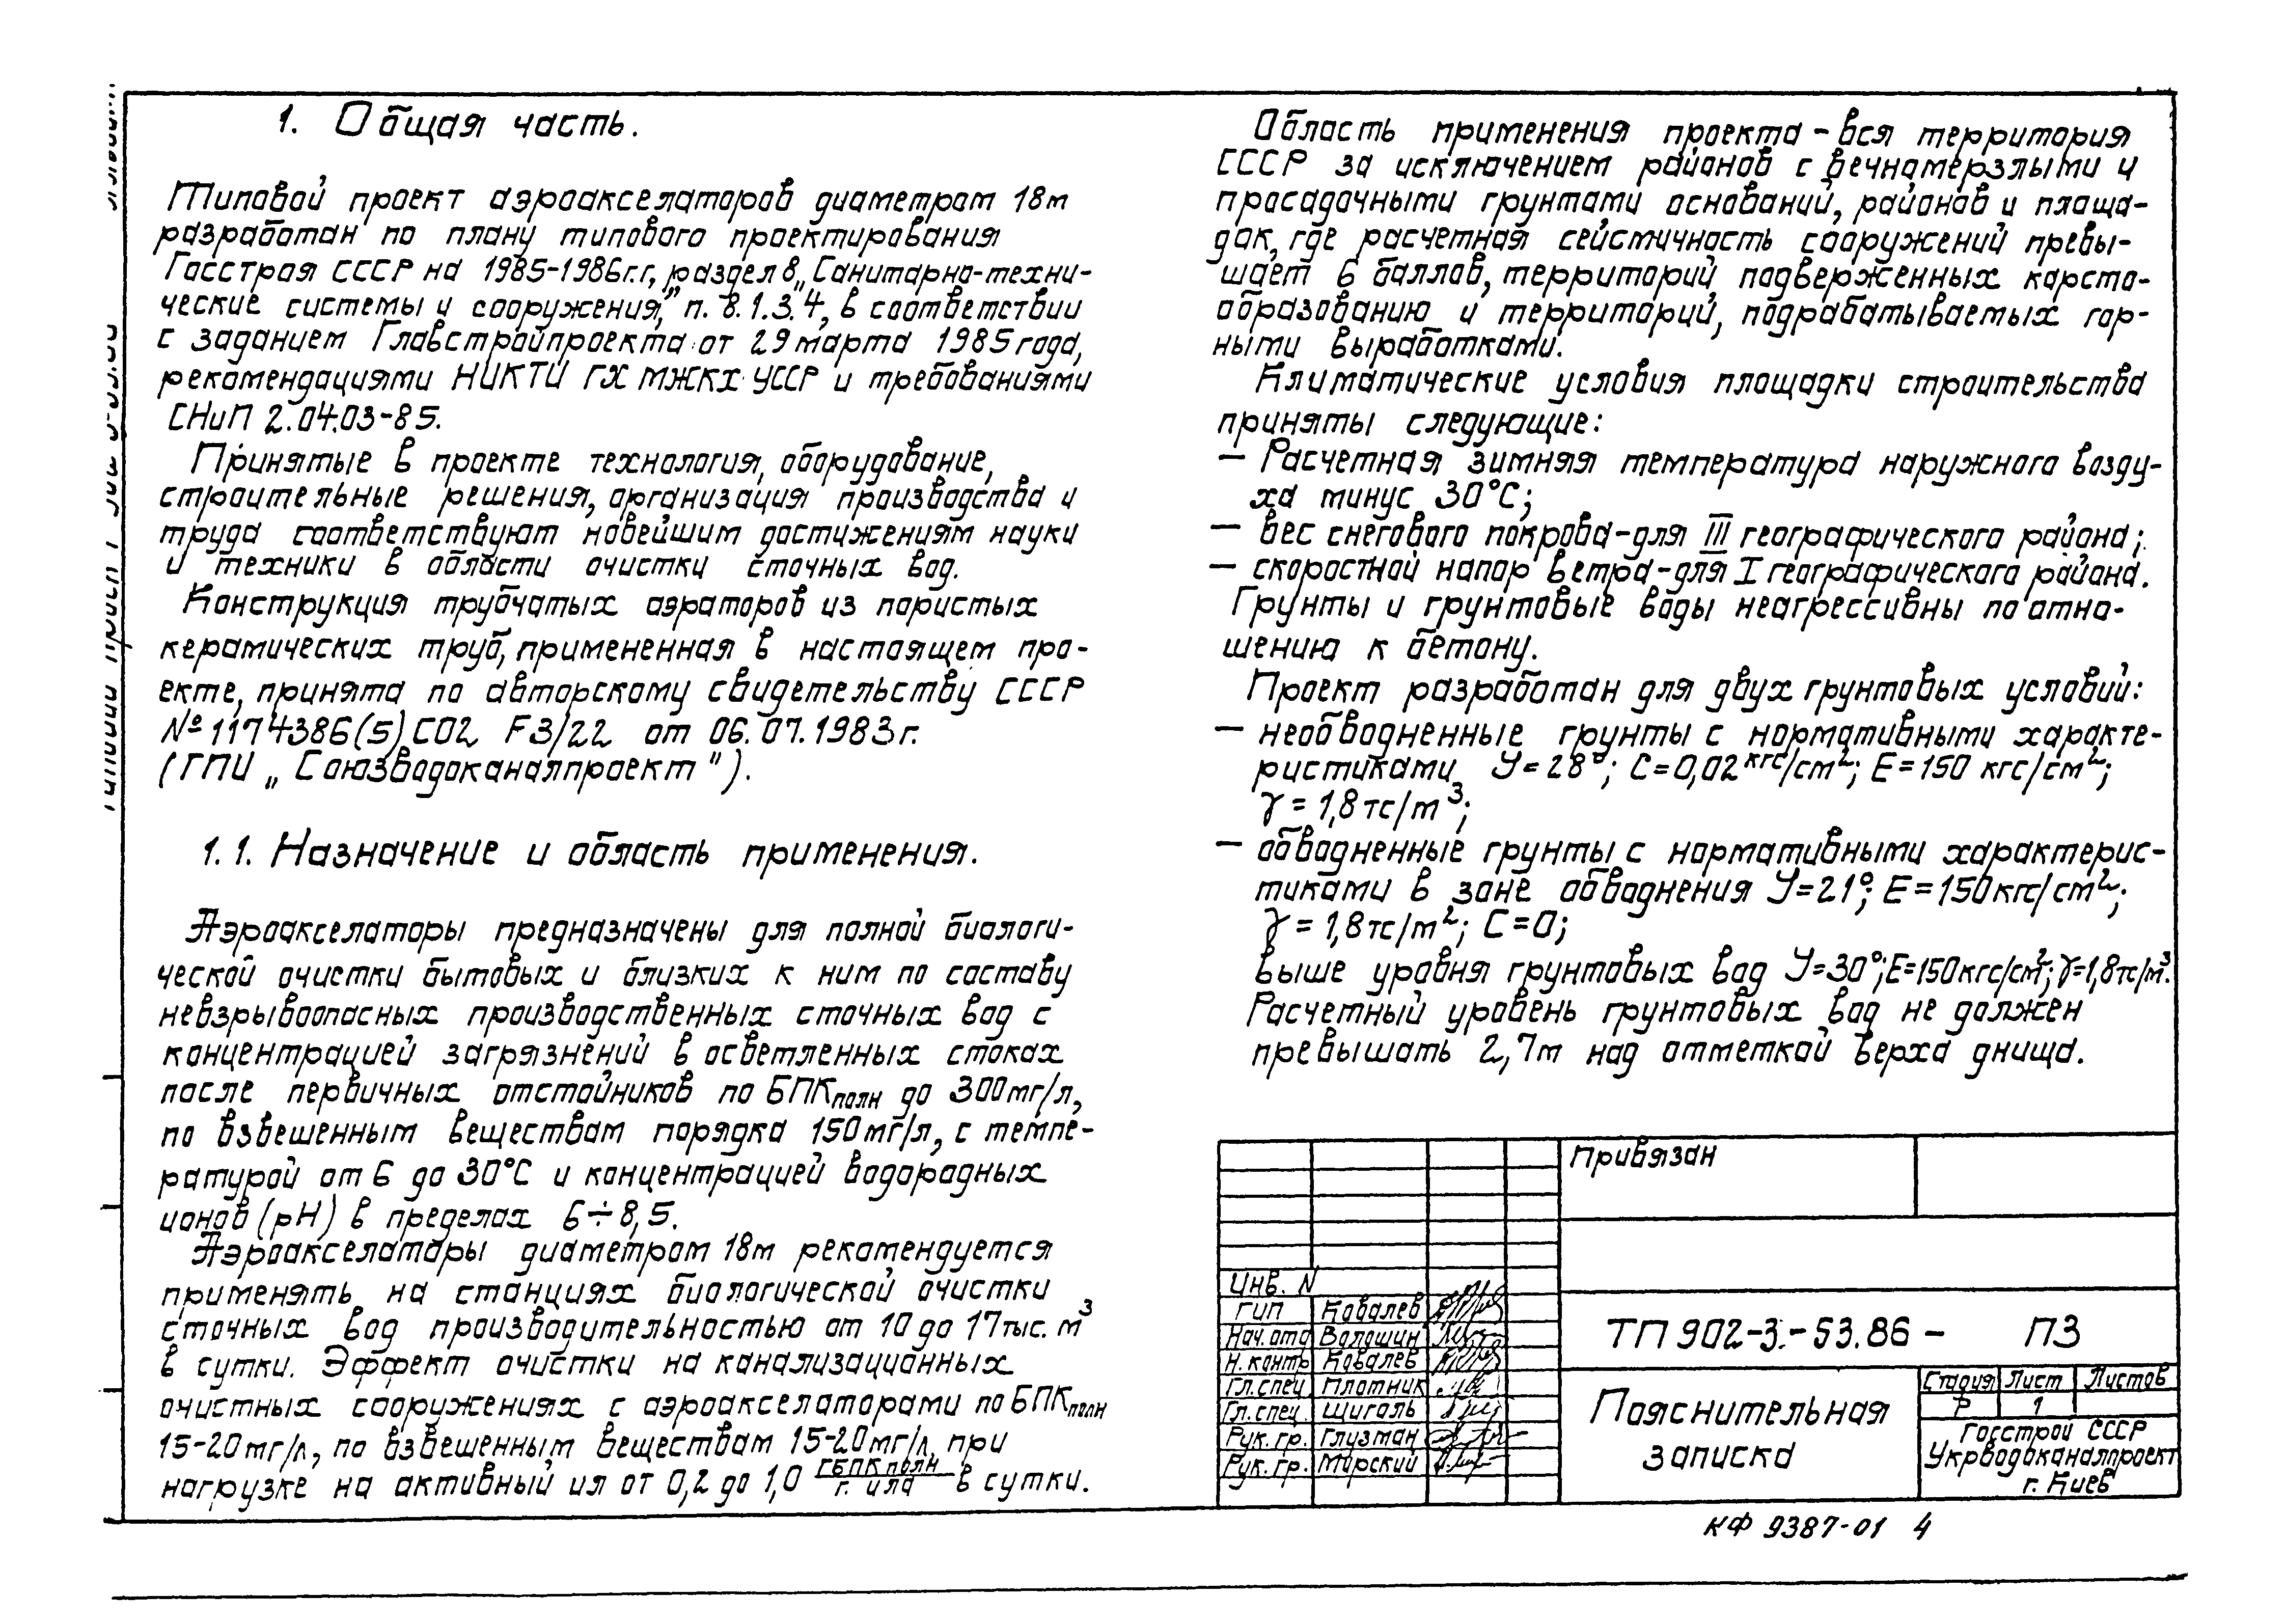 1. Общая часть.
Типовой проект аэроакселаторов диаметром 18м
разработан по плану типового проектирования
Госстроя СССР на 1985-1986г.г., раздел 8 „Санитарно-техни-
ческие системы и сооружения," п. 8.1.3.4, в соответствии
с заданием Главстройпроекта от 29 марта 1985 года,
рекомендациями НИКТИ ГХ МЖКХ УССР и требованиями
СНиП 2.04.03-85.
Принятые в проекте технология, оборудование,
строительные решения, организация производства и
труда соответствуют новейшим достижениям науки
и техники в области очистки сточных вод.
Конструкция трубчатых аэраторов из пористых
керамических труб, примененная в настоящем про-
екте, принята по авторскому свидетельству СССР
№ 1174386(5) С02 F3/22 от 06.07.1983г.
(ГПИ „Союзводоканалпроект").
1.1. Назначение и область применения.
Аэроакселаторы предназначены для полной биологи-
ческой очистки бытовых и близких к ним по составу
невзрывоопасных производственных сточных вод с
концентрацией загрязнений в осветленных стоках
после первичных отстойников по БПКполн до 300мг/л,
по взвешенным веществам порядка 150мг/л, с темпе-
ратурой от 6 до 30°С и концентрацией водородных
ионов (рН) в пределах 6÷8,5.
Аэроакселаторы диаметром 18м рекомендуется
применять на станциях биологической очистки
сточных вод производительностью от 10 до 17 тыс. м³
в сутки. Эффект очистки на канализационных
очистных сооружениях с аэроакселаторами по БПКполн
15-20мг/л, по взвешенным веществам 15-20мг/л, при
нагрузке на активный ил от 0,2 до 1,0 гБПКполн/г. ила в сутки.
Область применения проекта - вся территория
СССР за исключением районов с вечномерзлыми и
просадочными грунтами оснований, районов и площа-
док, где расчетная сейсмичность сооружений превы-
шает 6 баллов, территорий подверженных карсто-
образованию и территорий, подрабатываемых гор-
ными выработками.
Климатические условия площадки строительства
приняты следующие:
— Расчетная зимняя температура наружного возду-
ха минус 30°С;
— вес снегового покрова-для III географического района;
— скоростной напор ветра-для I географического района.
Грунты и грунтовые воды неагрессивны по отно-
шению к бетону.
Проект разработан для двух грунтовых условий:
— необводненные грунты с нормативными характе-
ристиками У=28°; С=0,02 кгс/см²; Е=150 кгс/см²;
γ=1,8тс/м³;
— обводненные грунты с нормативными характерис-
тиками в зоне обводнения У=21°; Е=150кгс/см²;
γ=1,8тс/м²; С=0;
выше уровня грунтовых вод У=30°; Е=150кгс/см²; γ=1,8тс/м³.
Расчетный уровень грунтовых вод не должен
превышать 2,7м над отметкой верха днища.
Привязан
Инв. N
ГИП Ковалев
Нач. отд Волошин
Н. контр Ковалев
Гл. спец Плотник
Гл. спец. Щиголь
Рук. гр. Глузман
Рук. гр. Морский
ТП 902-3-53.86 - ПЗ
Пояснительная
записка
Стадия Лист Листов
Р 1
Госстрой СССР
Укрводоканалпроект
г. Киев
КФ 9387-01 4